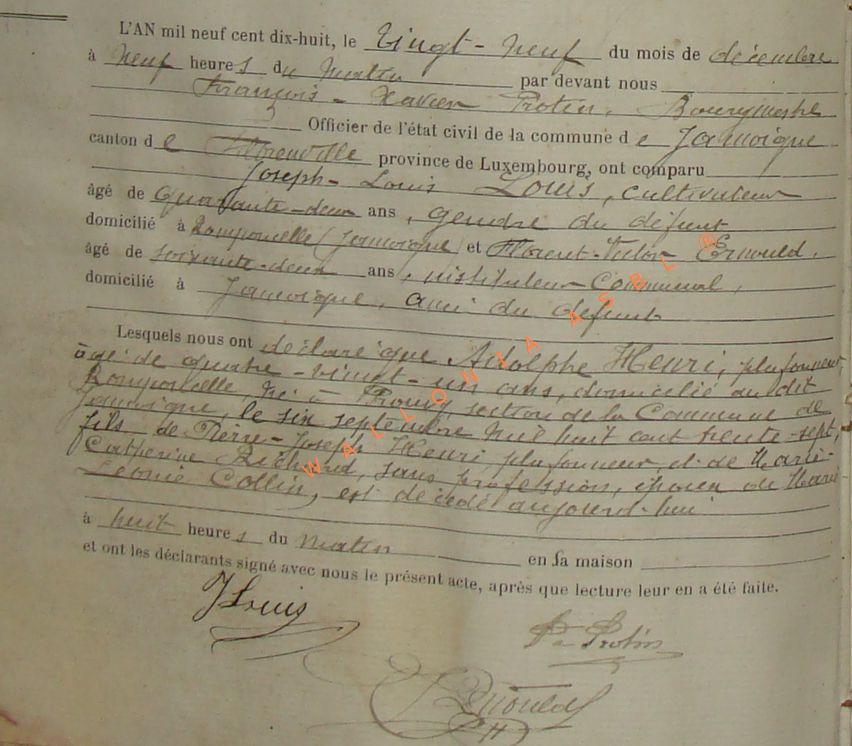 L'AN mil neuf cent dix-huit, le Vingt-Neuf du mois de décembre
à Neuf heures du matin par devant nous
François-Xavier Protin, Bourgmestre
Officier de l'état civil de la commune de Jamoigne
canton de Florenville province de Luxembourg, ont comparu
Joseph-Louis Louis, cultivateur
âgé de quarante-deux ans, gendre du défunt
domicilié à Romponcelle (Jamoigne) et Florent-Victor Ernould,
âgé de soixante-deux ans, instituteur Communal,
domicilié à Jamoigne, ami du défunt
Lesquels nous ont déclaré que Adolphe Henri, plafonneur,
âgé de quatre-vingt-un ans, domicilié au dit
Romponcelle, né à Prouvy, section de la Commune de
Jamoigne, le six septembre mil huit cent trente-sept,
fils de Pierre-Joseph Henri, plafonneur, et de Marie-
Catherine Richard, sans profession, époux de Marie
Léonie Collin, est décédé aujourd'hui
à huit heures du matin en sa maison
et ont les déclarants signé avec nous le présent acte, après que lecture leur en a été faite.
J Louis
Protin
Ernould
WALLONIA ASBL ©